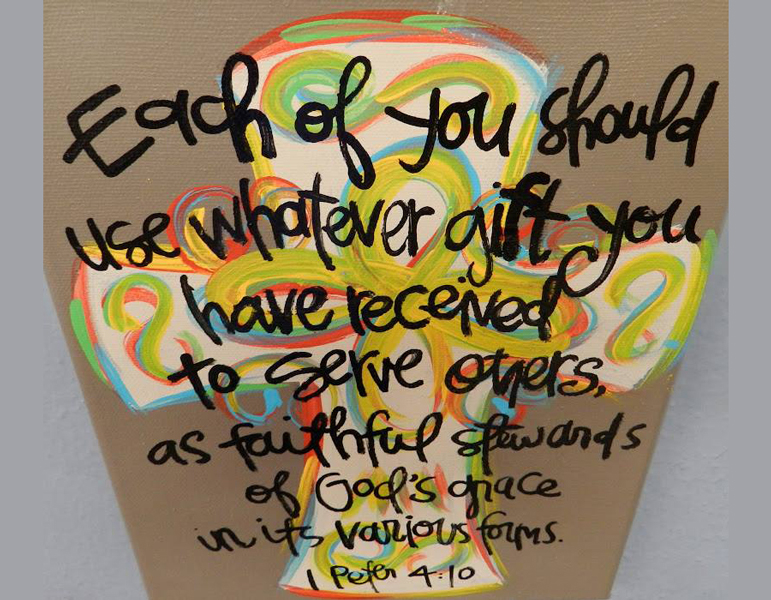 Each of you should
use whatever gift you
have received
to serve others,
as faithful stewards
of God's grace
in its various forms.
1 Peter 4:10